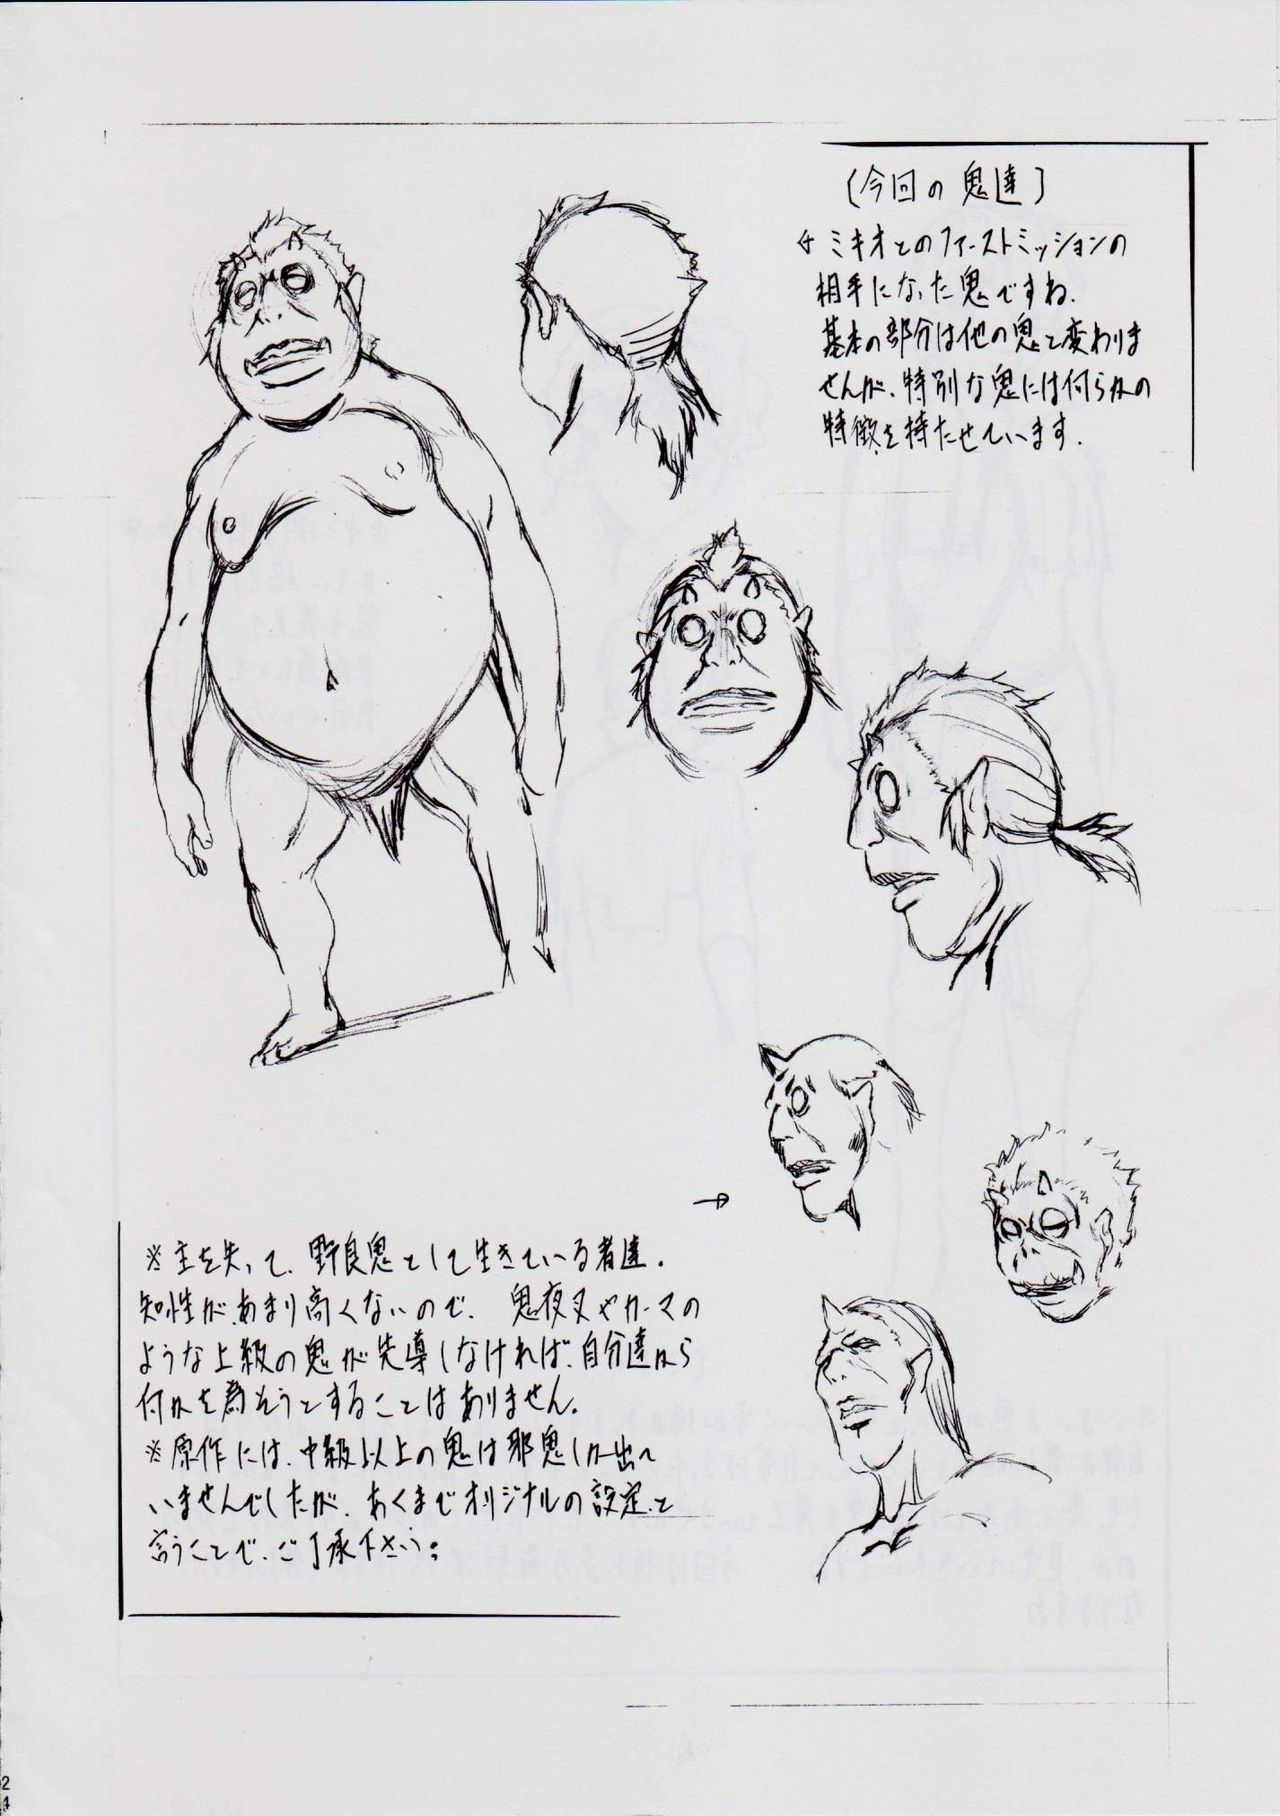 (今回の鬼達)
← ミキオとのファーストミッションの
相手になった鬼ですね.
基本の部分は他の鬼と変わりま
せんが、特別な鬼には何らかの
特徴を持たせています.
→
※主を失って、野良鬼として生きている者達.
知性があまり高くないので、鬼夜叉やカーマの
ような上級の鬼が先導しなければ、自分達から
何かを為そうとすることはありません.
※原作には、中級以上の鬼は邪鬼しか出て
いませんでしたが、あくまでオリジナルの設定と
言うことで、ご了承下さい。
24